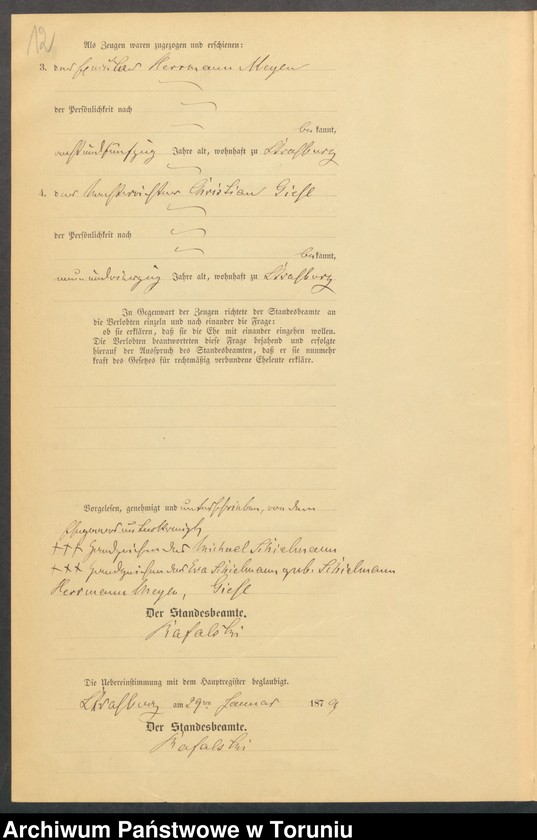 12
Als Zeugen waren zugezogen und erschienen:
3. der Herrmann Meyen
der Persönlichkeit nach
bekannt,
achtundfünfzig Jahre alt, wohnhaft zu Strasburg
4. der Christian Giese
der Persönlichkeit nach
bekannt,
neunundvierzig Jahre alt, wohnhaft zu Strasburg
In Gegenwart der Zeugen richtete der Standesbeamte an
die Verlobten einzeln und nach einander die Frage:
ob sie erklären, daß sie die Ehe mit einander eingehen wollen.
Die Verlobten beantworteten diese Frage bejahend und erfolgte
hierauf der Ausspruch des Standesbeamten, daß er sie nunmehr
kraft des Gesetzes für rechtmäßig verbundene Eheleute erkläre.
Vorgelesen, genehmigt und unterschrieben, von dem
+++ Handzeichen des Michael Schielmann
+++ Handzeichen der Eva Schielmann geb. Schielmann
Herrmann Meyen, Giese
Der Standesbeamte.
Rafalski
Die Uebereinstimmung mit dem Hauptregister beglaubigt.
Strasburg am 29ten Januar 1879
Der Standesbeamte.
Rafalski
Archiwum Państwowe w Toruniu